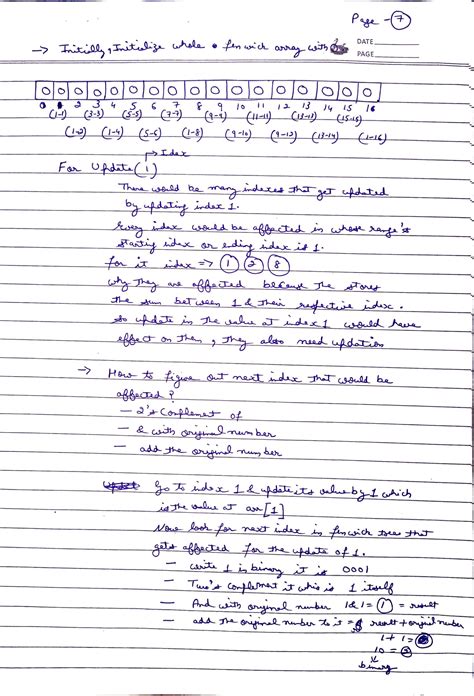 Page - 7
DATE
PAGE
→ Initially, Initialize whole fenwick array with
0 0 0 0 0 0 0 0 0 0 0 0 0 0 0 0 0
0 1 2 3 4 5 6 7 8 9 10 11 12 13 14 15 16
(1-1) (3-3) (5-5) (7-7) (9-9) (11-11) (13-13) (15-15)
(1-2) (1-4) (5-6) (1-8) (9-10) (9-12) (13-14) (1-16)
→ Index
For Update(1)
There would be many indexes that get updated
by updating index 1.
Every index would be affected in whose range's
starting index or ending index is 1.
for it index => 1 2 8
why they are affected because the stores
the sum between 1 & their respective index.
so update in the value at index 1 would have
effect on them, they also need updation
→ How to figure out next index that would be
affected?
— 2's Complement of
— & with original number
— add the original number
Go to index 1 & update its value by 1 which
is the value at arr[1]
Now look for next index in fenwick tree that
gets affected for the update of 1.
— write 1 in binary it is 0001
— Two's complement it whis is 1 itself
— And with original number 1&1 = 1 = result
— add the original number to it = result + original number
1 + 1 = 2
10 = 2
binary